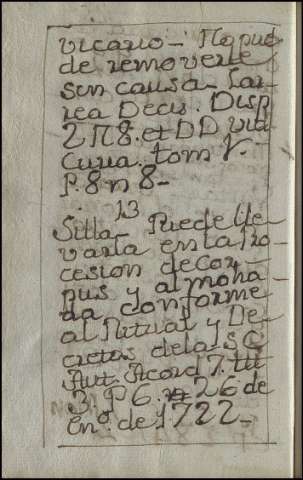 vicario - No pue
de removerse
sin causa - Lar
rea Decis. Disp
2 n 8. et DD vid
Curia. tom 1.
P. 8 n 8 -
13
Silla - Puede lle
varla en la Pro
cesion de Cor-
pus y almoha
da conforme
al Ritual y De
cretos de la S C
Aut. Acord 7. tit
3. P 6. 26 de
En.º de 1722 -